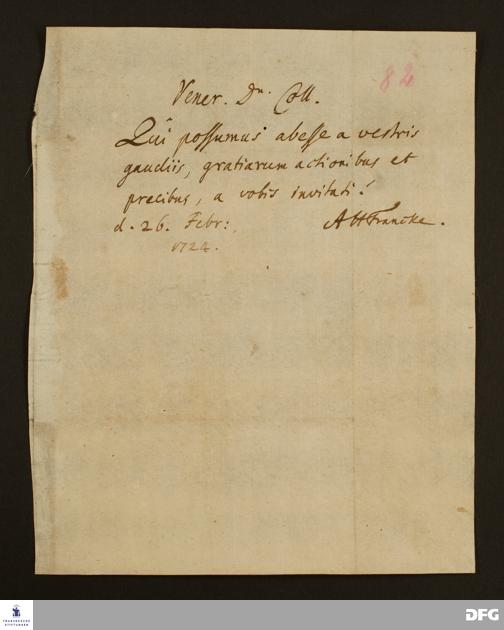 82
Vener. Dn. Coll.
Quî possumus abesse a vestris
gaudiis, gratiarum actionibus et
precibus, a vobis invitati!
d. 26. Febr:
AHFrancke.
1724.
FRANCKESCHE
STIFTUNGEN
DFG